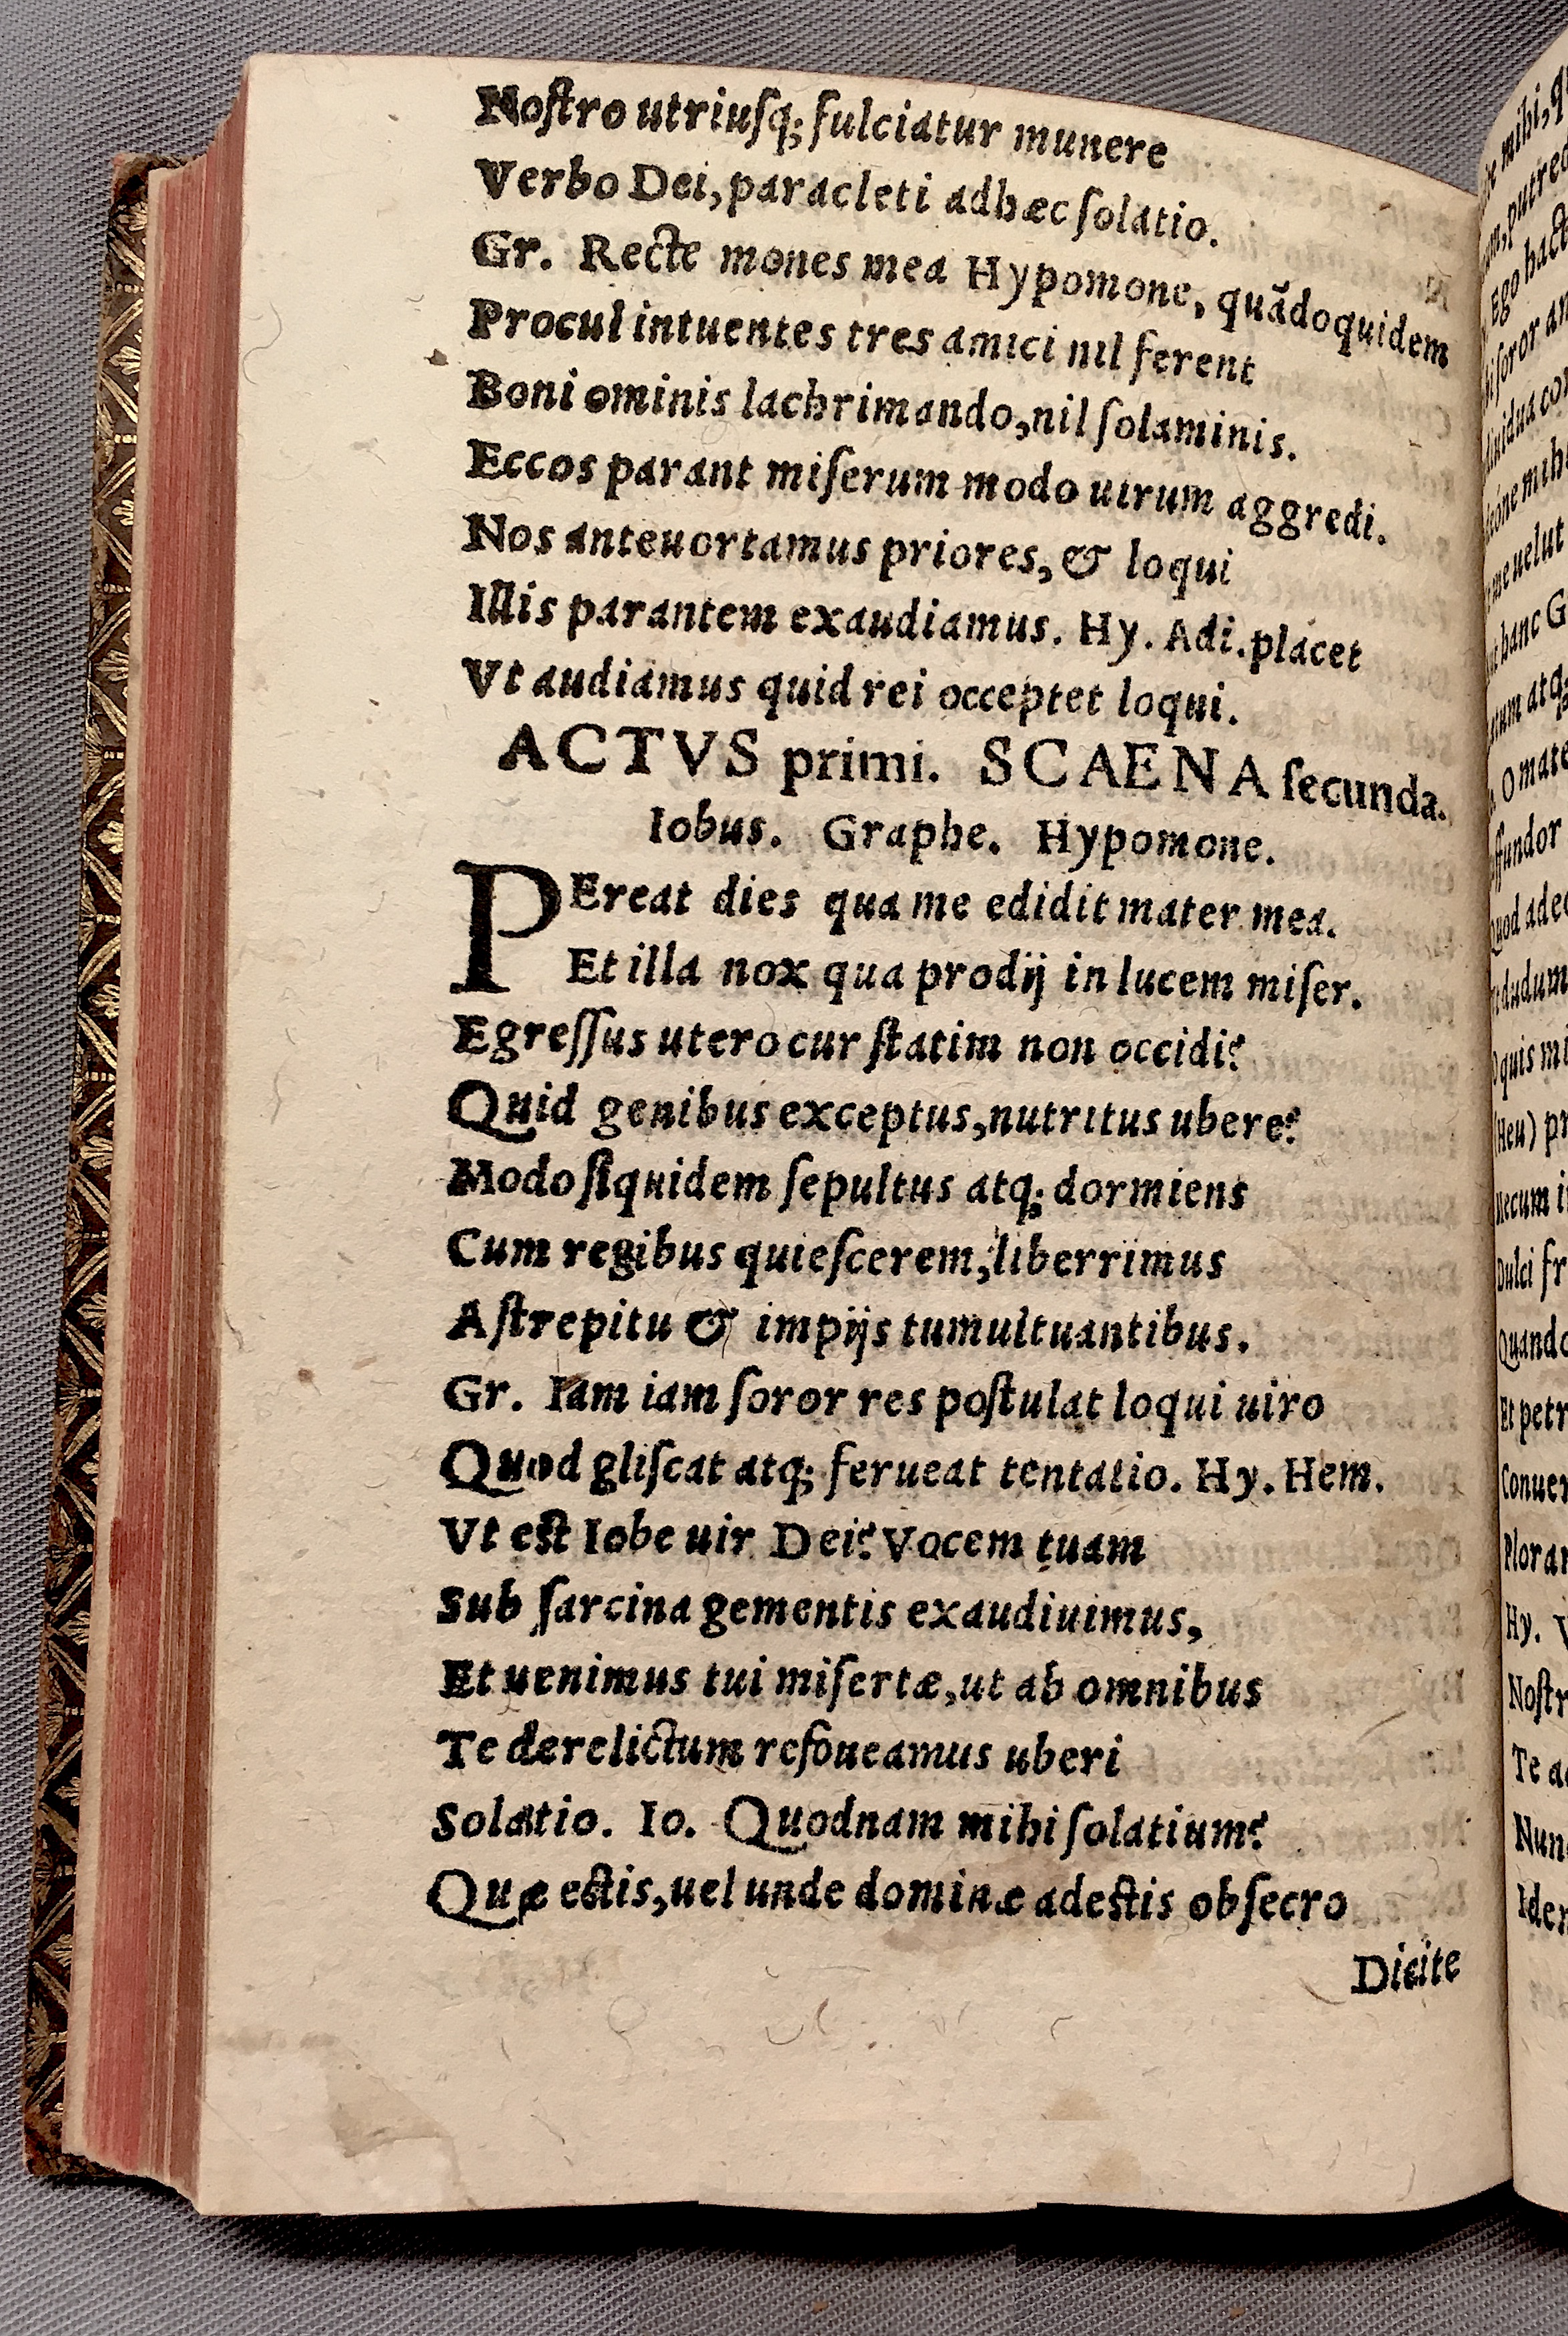 Noſtro utriuſq; fulciatur munere
Verbo Dei, paracleti adhæc ſolatio.
Gr. Recte mones mea Hypomone, quãdoquidem
Procul intuentes tres amici nil ferent
Boni ominis lachrimando, nil ſolaminis.
Eccos parant miſerum modo uirum aggredi.
Nos anteuortamus priores, & loqui
Illis parantem exaudiamus. Hy. Adi. placet
Vt audiamus quid rei occeptet loqui.
ACTVS primi. SCAENA ſecunda.
Iobus. Graphe. Hypomone.
PEreat dies qua me edidit mater mea.
Et illa nox qua prodij in lucem miſer.
Egreſſus utero cur ſtatim non occidi?
Quid genibus exceptus, nutritus ubere?
Modo ſiquidem ſepultus atq; dormiens
Cum regibus quieſcerem, liberrimus
A ſtrepitu & impijs tumultuantibus.
Gr. Iam iam ſoror res poſtulat loqui uiro
Quod gliſcat atq; ferueat tentatio. Hy. Hem.
Vt eſt Iobe uir Dei? Vocem tuam
Sub ſarcina gementis exaudiuimus,
Et uenimus tui miſertæ, ut ab omnibus
Te derelictum refoueamus uberi
Solatio. Io. Quodnam mihi ſolatium?
Quæ eſtis, uel unde dominæ adeſtis obſecro
Dicite
mihi,
putred
Ego hact
ſoror
mihi
me uelut
hanc G
atq;
O mate
ffundor
quod adeo
dudum
O quis
(Heu)
Mecum
Dulci
Quando
Et petr
Conuer
Plorar
Hy. V
Noſtr
Te a
Nun
Ider